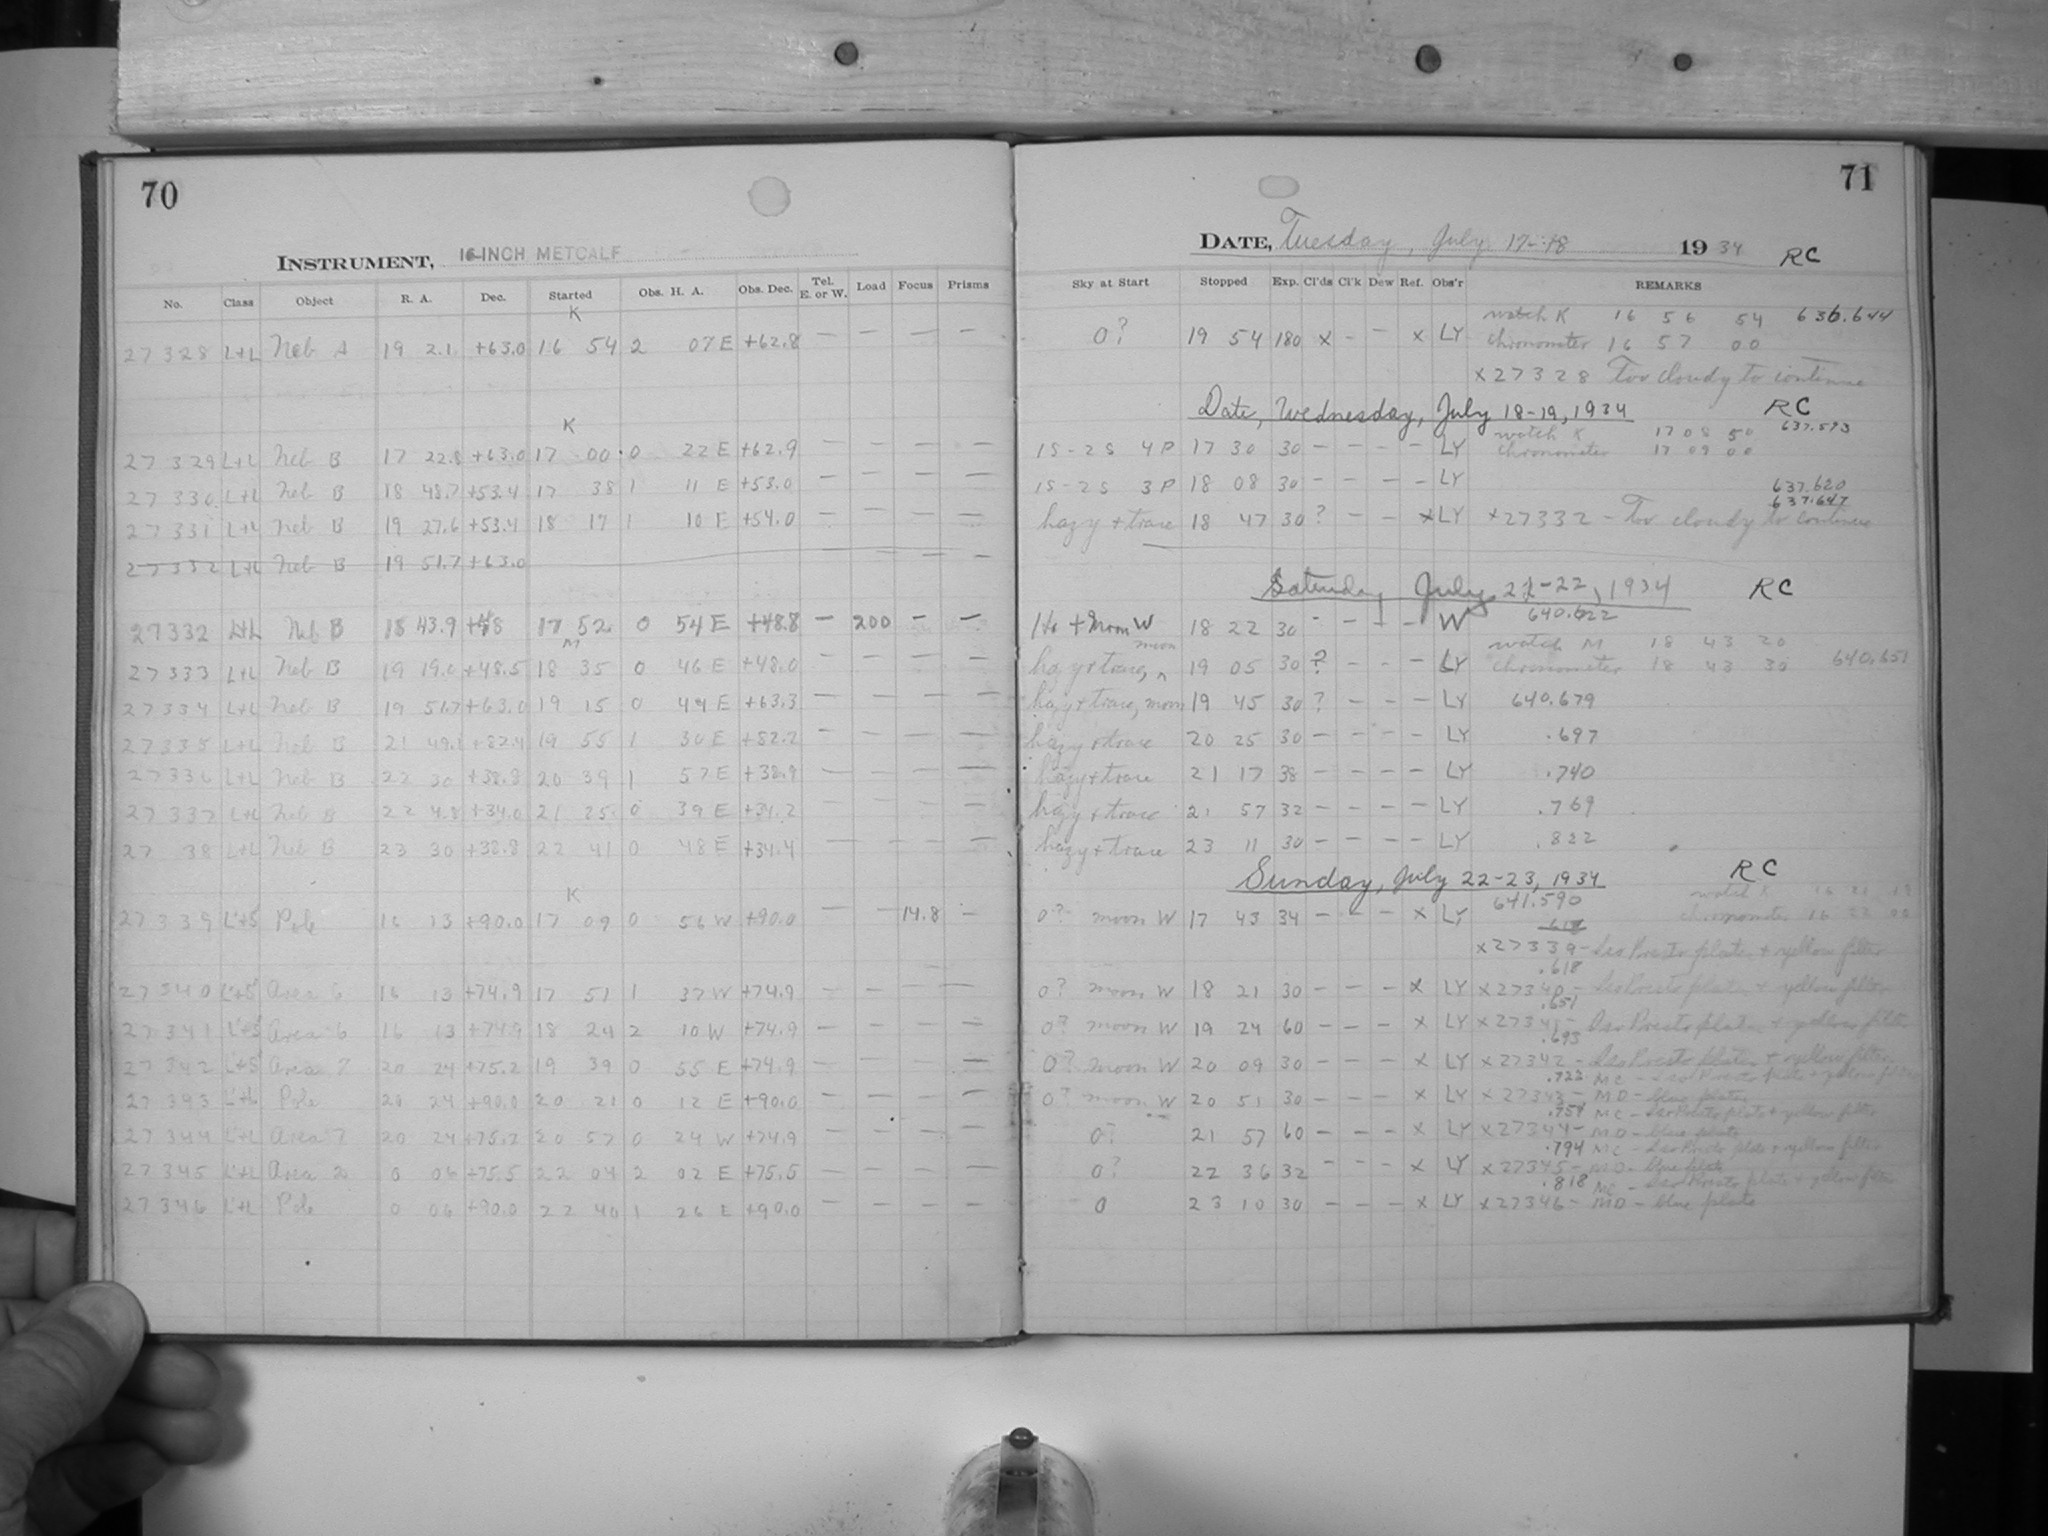 70
INSTRUMENT, 16-INCH METCALF
No. Class Object R. A. Dec. Started Obs. H. A. Obs. Dec. Tel. E. or W. Load Focus Prisms
K
27328 L+L Neb A 19 2.1 +63.0 16 54 2 07 E +62.8 — — — —
K
27329 L+L Neb B 17 22.8 +63.0 17 00 0 22 E +62.9 — — — —
27330 L+L Neb B 18 48.7 +53.4 17 38 1 11 E +53.0 — — — —
27331 L+L Neb B 19 27.6 +53.4 18 17 1 10 E +54.0 — — — —
27332 L+L Neb B 19 51.7 +63.0
27332 L+L Neb B 18 43.9 +48 17 52 0 54 E +48.8 — 200 — —
M
27333 L+L Neb B 19 19.0 +48.5 18 35 0 46 E +48.0 — — — —
27334 L+L Neb B 19 51.7 +63.0 19 15 0 49 E +63.3 — — — —
27335 L+L Neb B 21 49.1 +82.4 19 55 1 30 E +82.2 — — — —
27336 L+L Neb B 22 30 +38.8 20 39 1 57 E +38.9 — — — —
27337 L+L Neb B 22 4.8 +34.0 21 25 0 39 E +34.2 — — — —
27 38 L+L Neb B 23 30 +38.8 22 41 0 48 E +34.4 — — — —
K
27339 L'+S' Pole 16 13 +90.0 17 09 0 56 W +90.0 — — 14.8 —
27340 L'+S' Area 6 16 13 +74.9 17 51 1 37 W +74.9 — — — —
27341 L'+S' Area 6 16 13 +74.9 18 24 2 10 W +74.9 — — — —
27342 L'+S' Area 7 20 24 +75.2 19 39 0 55 E +74.9 — — — —
27343 L'+L Pole 20 24 +90.0 20 21 0 12 E +90.0 — — — —
27344 L'+L Area 7 20 24 +75.2 20 57 0 24 W +74.9 — — — —
27345 L'+L Area 2 0 06 +75.5 22 04 2 02 E +75.5 — — — —
27346 L'+L Pole 0 06 +90.0 22 40 1 26 E +90.0 — — — —
71
DATE, Tuesday, July 17-18 1934 RC
Sky at Start Stopped Exp. Cl'ds Cl'k Dew Ref. Obs'r REMARKS
watch K 16 56 54 636.644
0? 19 54 180 x - - x LY chronometer 16 57 00
x 27328 Too cloudy to continue
Date, Wednesday, July 18-19, 1934 RC
watch K 17 08 50 637.593
1S-2S 4P 17 30 30 - - - - LY chronometer 17 09 00
1S-2S 3P 18 08 30 - - - - LY 637.620
637.647
hazy + trace 18 47 30 ? - - x LY x 27332 - Too cloudy to continue
Saturday July 21-22, 1934 RC
640.622
moon W 18 22 30 - - - - W
watch M 18 43 20
moon
hazy + trace, ^ 19 05 30 ? - - - LY chronometer 18 43 30 640.651
hazy + trace, moon 19 45 30 ? - - - LY 640.679
hazy + trace 20 25 30 - - - - LY .697
hazy + trace 21 17 38 - - - - LY .740
hazy + trace 21 57 32 - - - - LY .769
hazy + trace 23 11 30 - - - - LY .822
Sunday, July 22-23, 1934 RC
641.590 watch K 16 21
0? moon W 17 43 34 - - - x LY chronometer 16 22 00
.618
x 27339 - Iso Presto plate + yellow filter
.618
0? moon W 18 21 30 - - - x LY x 27340 - Iso Presto plate + yellow filter
.651
0? moon W 19 24 60 - - - x LY x 27341 - Iso Presto plate + yellow filter
.693
0? moon W 20 09 30 - - - x LY x 27342 - Iso Presto plate + yellow filter
.723 MC - Iso Presto plate + yellow filter
0? moon W 20 51 30 - - - x LY x 27343 - MD - blue plate
.754 MC - Iso Presto plate + yellow filter
0? 21 57 60 - - - x LY x 27344 - MD - blue plate
.794 MC - Iso Presto plate + yellow filter
0? 22 36 32 - - - x LY x 27345 - MD - blue plate
.818 MC - Iso Presto plate + yellow filter
0 23 10 30 - - - x LY x 27346 - MD - blue plate